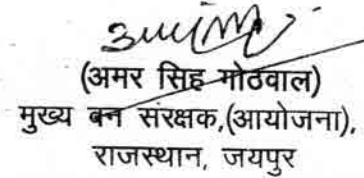 (अमर सिंह गोठवाल)
मुख्य वन संरक्षक,(आयोजना),
राजस्थान, जयपुर